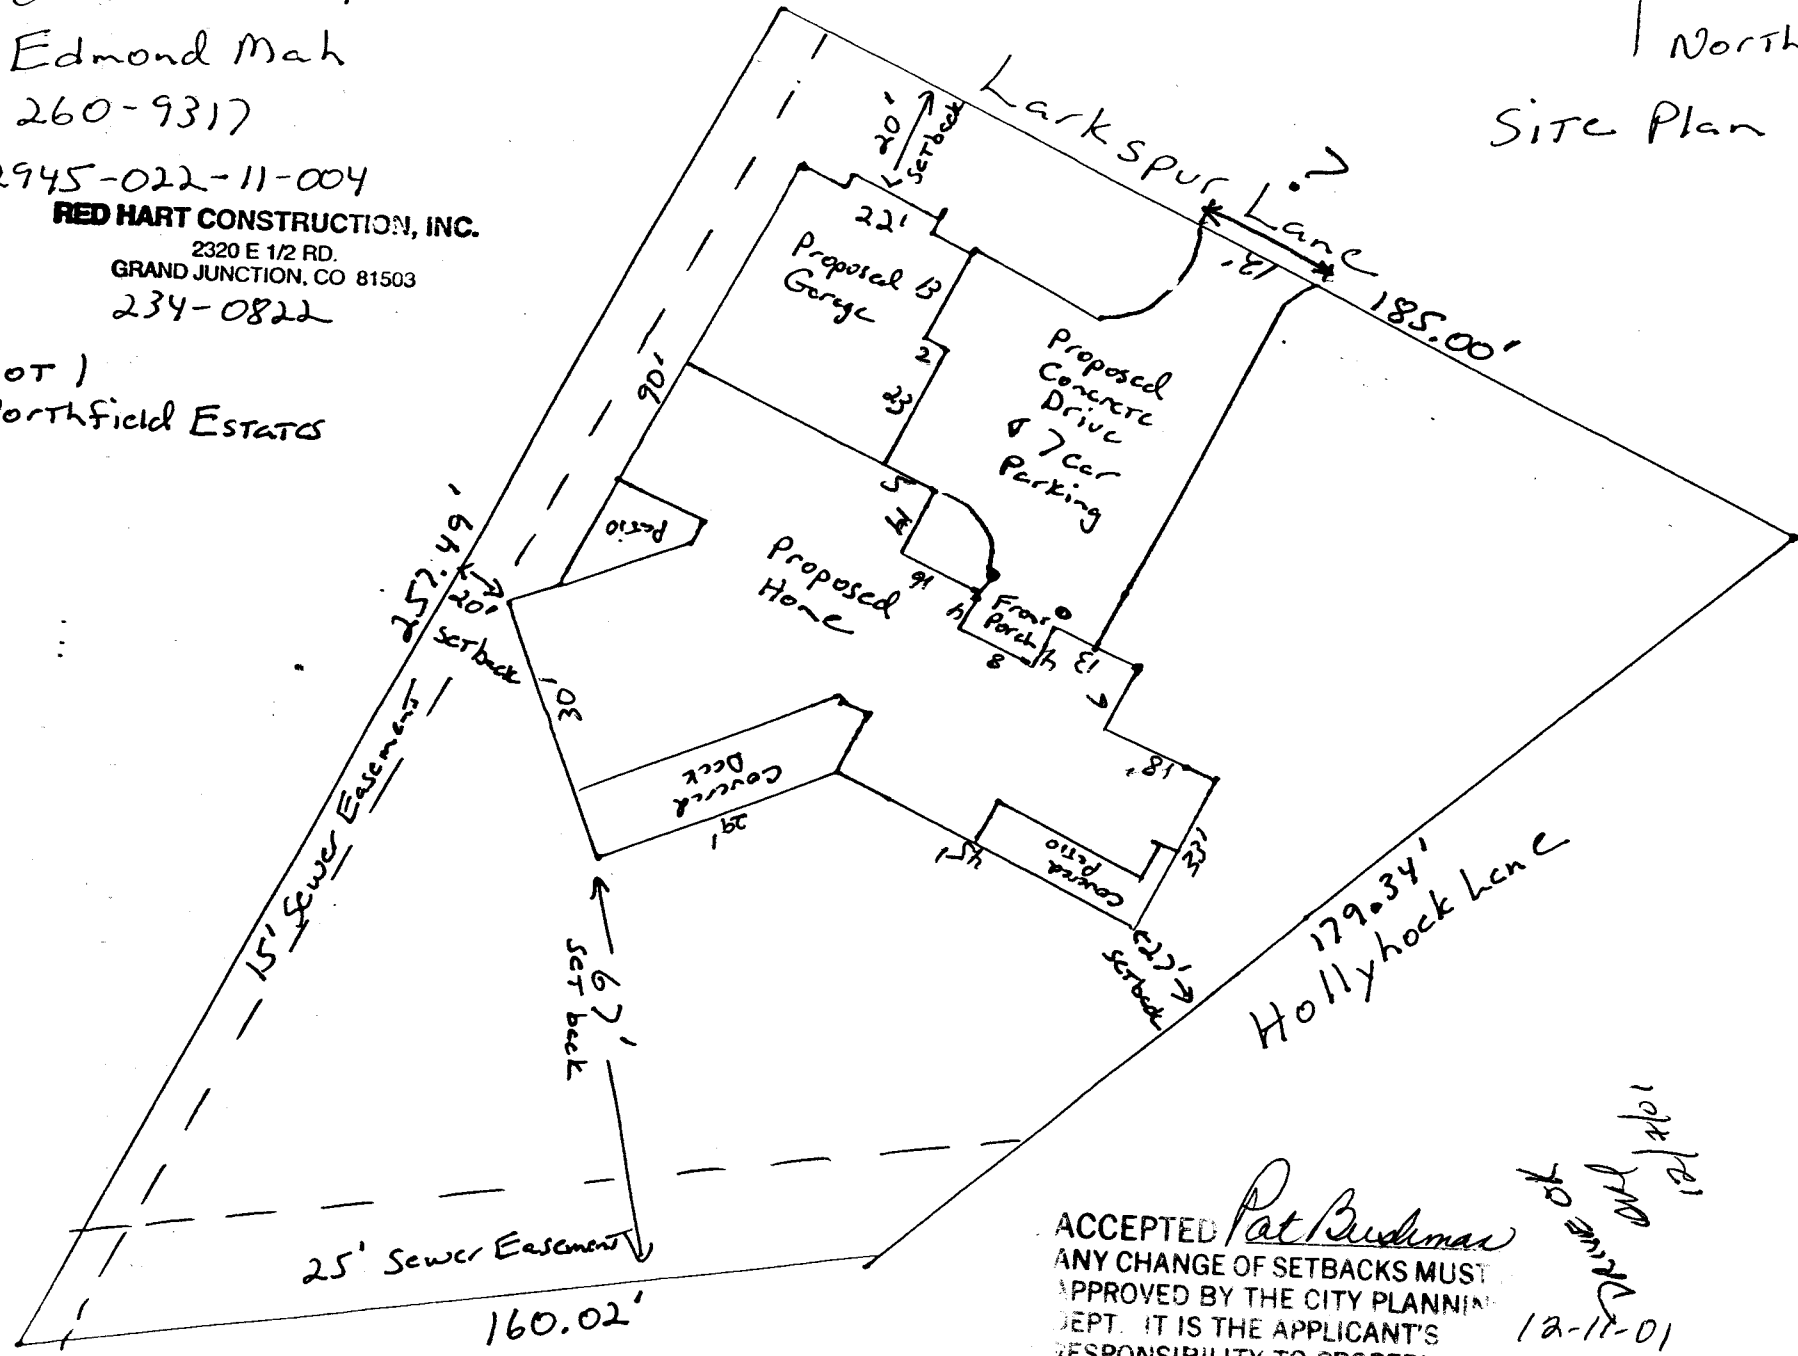 Edmond Mah
260-9317
2945-022-11-004
RED HART CONSTRUCTION, INC.
2320 E 1/2 RD.
GRAND JUNCTION, CO 81503
234-0822
Lot 1
Northfield Estates
North
Site Plan
Larkspur Lane
?
20'
setback
22'
12'
185.00'
Proposed
Garage
13
2
23
90'
Proposed
Concrete
Drive
& 7 car
Parking
5
16
Patio
Proposed
Home
Front
Porch
4
8
4
13
7
18'
257.49'
20'
setback
30'
Covered
Deck
29'
45'
Covered
Patio
33'
27'
setback
179.34'
Hollyhock Lane
15' Sewer Easement
67'
set back
25' Sewer Easement
160.02'
ACCEPTED Pat Bushman
ANY CHANGE OF SETBACKS MUST
APPROVED BY THE CITY PLANNIN
DEPT. IT IS THE APPLICANT'S
RESPONSIBILITY TO PROPER
DRIVE OK
12-11-01